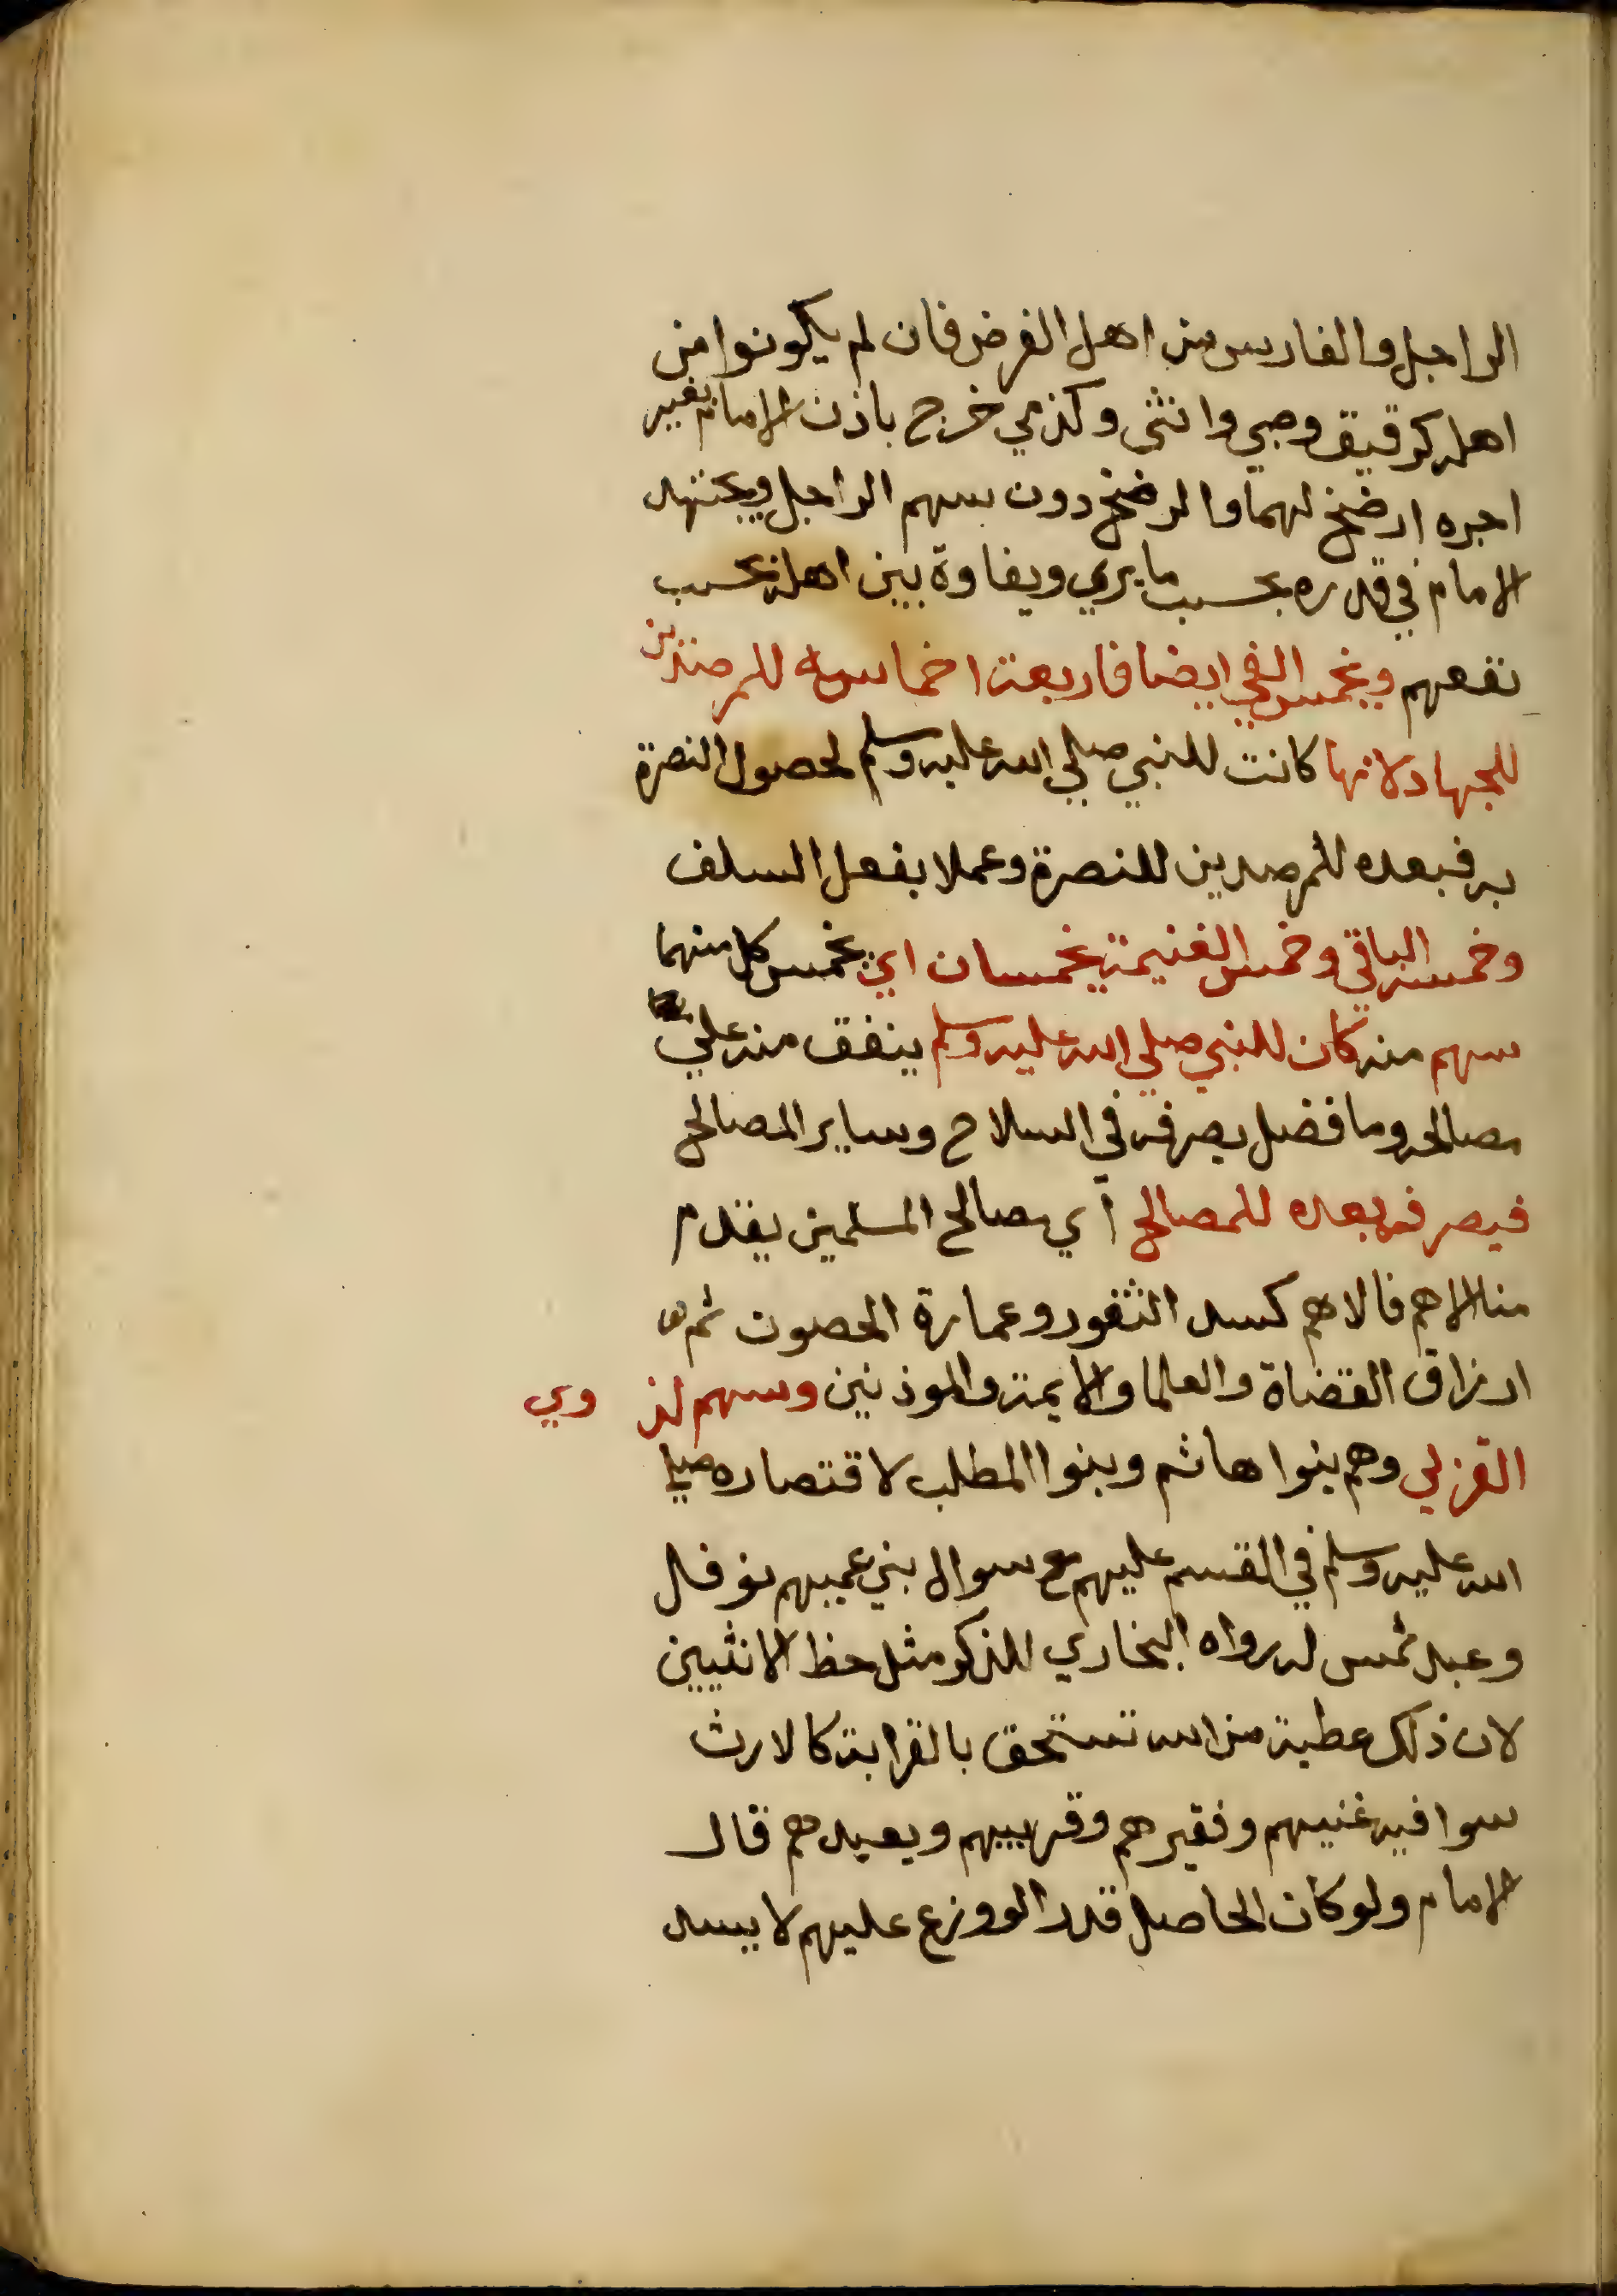 الراجل والفارس من اهل الفرض فان لم يكونوا من
اهله كرقيق وصبي وانثى وكذمي خرج باذن الامام بغير
اجره ارضخ لهما والرضخ دون سهم الراجل ويجتهد
الامام في قدره بحسب ما يري ويفاوة بين اهله بحسب
نفعهم ويخمس الفي ايضا فاربعة اخماسه للمرصدين
للجهاد لانها كانت للنبي صلي الله عليه وسلم لحصول النصرة
به فبعده للمرصدين للنصرة وعملا بفعل السلف
وخمسه الباقي وخمس الغنيمة يخمسان اي يخمس كل منهما
سهم منه كان للنبي صلي الله عليه وسلم ينفق منه علي
مصالحه وما فضل يصرفه في السلاح وساير المصالح
فيصرف بعده للمصالح أي مصالح المسلمين يقدم
منا الاهم فالاهم كسد الثغور وعمارة الحصون ثم
ارزاق القضاة والعلما والايمة والموذنين وسهم لذ وي
القربي وهم بنوا هاشم وبنوا المطلب لاقتصاره صلي
الله عليه وسلم في القسم عليهم مع سوال بني عميهم نوفل
وعبد شمس له رواه البخاري للذكر مثل حظ الانثيين
لان ذلك عطية من الله تستحق بالقرابة كالارث
سوا فيه غنيهم وفقيرهم وقريبهم وبعيدهم قال
الامام ولو كان الحاصل قدرا لو وزع عليهم لا يسد